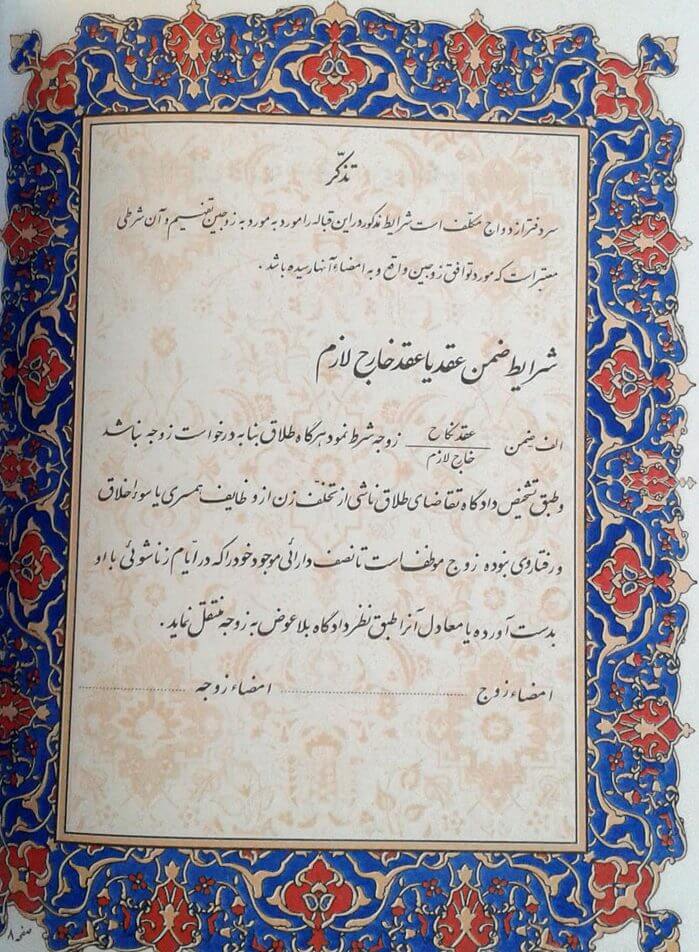 تذکّر
سردفتر ازدواج مکلّف است شرایط مذکور در این قباله را مورد به مورد به زوجین تفهیم و آن شرطی
معتبر است که مورد توافق زوجین واقع و به امضاء آنها رسیده باشد .
شرایط ضمن عقد یا عقد خارج لازم
الف ضمن عقد نکاح / خارج لازم زوجه شرط نمود هرگاه طلاق بنا به درخواست زوجه نباشد
و طبق تشخیص دادگاه تقاضای طلاق ناشی از تخلّف زن از وظایف همسری یا سوء اخلاق
و رفتار وی بوده زوج موظف است تا نصف دارائی موجود خود را که در ایّام زناشوئی با او
بدست آورده یا معادل آنرا طبق نظر دادگاه بلاعوض به زوجه منتقل نماید .
امضاء زوج .................... امضاء زوجه ....................
صفحه ۸